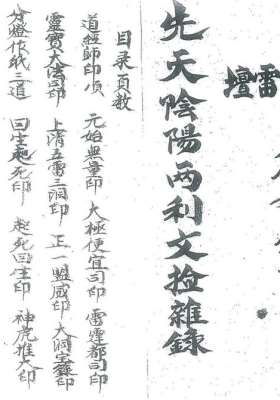 雷
壇
先天陰陽两利文捡雜錄
目录頁数
道經師印頂 元始無量印 大極便宜司印 雷霆都司印
靈寶大法司印 上清五雷三洞印 正一盟威印 大洞宝籙印
分燈作紙三道 回生起死印 起死回生印 神虎推大印